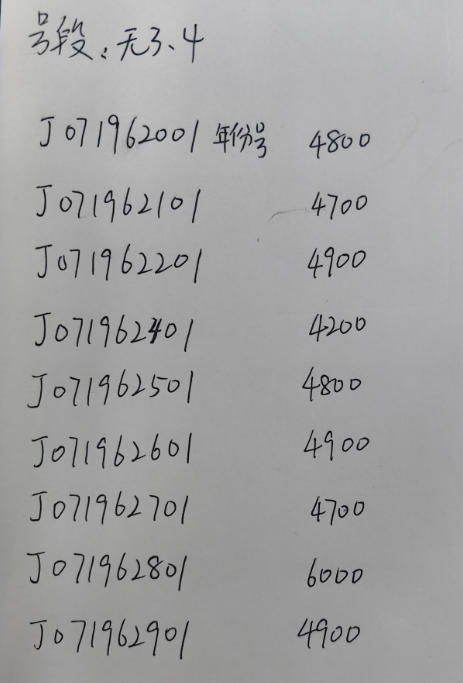 号段:无3、4
J071962001 年份号 4800
J071962101 4700
J071962201 4900
J071962401 4200
J071962501 4800
J071962601 4900
J071962701 4700
J071962801 6000
J071962901 4900